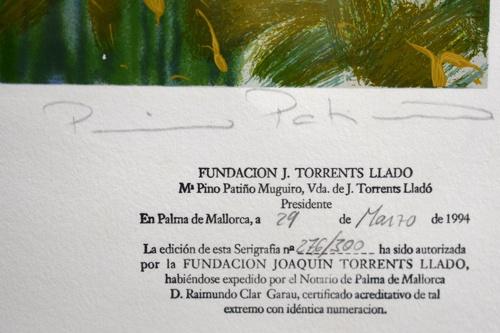 Pino Patiño
FUNDACION J. TORRENTS LLADO
Mª Pino Patiño Muguiro, Vda. de J. Torrents Lladó
Presidente
En Palma de Mallorca, a 29 de Marzo de 1994
La edición de esta Serigrafia nº 276/300 ha sido autorizada
por la FUNDACION JOAQUÍN TORRENTS LLADO,
habiéndose expedido por el Notario de Palma de Mallorca
D. Raimundo Clar Garau, certificado acreditativo de tal
extremo con idéntica numeracion.